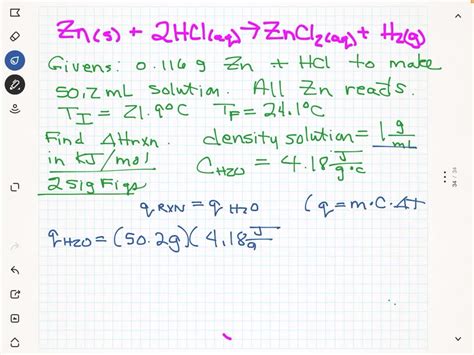 Zn(s) + 2HCl(aq) → ZnCl2(aq) + H2(g)
Givens: 0.116 g Zn + HCl to make
50.2 mL solution. All Zn reacts.
TI = 21.9°C TF = 24.1°C
Find ΔHrxn. density solution = 1 g/mL
in KJ/mol CH2O = 4.18 J/g·°C
2 Sig Figs
qRXN = qH2O (q = m·C·ΔT
qH2O = (50.2g)(4.18 J/g
34 / 34